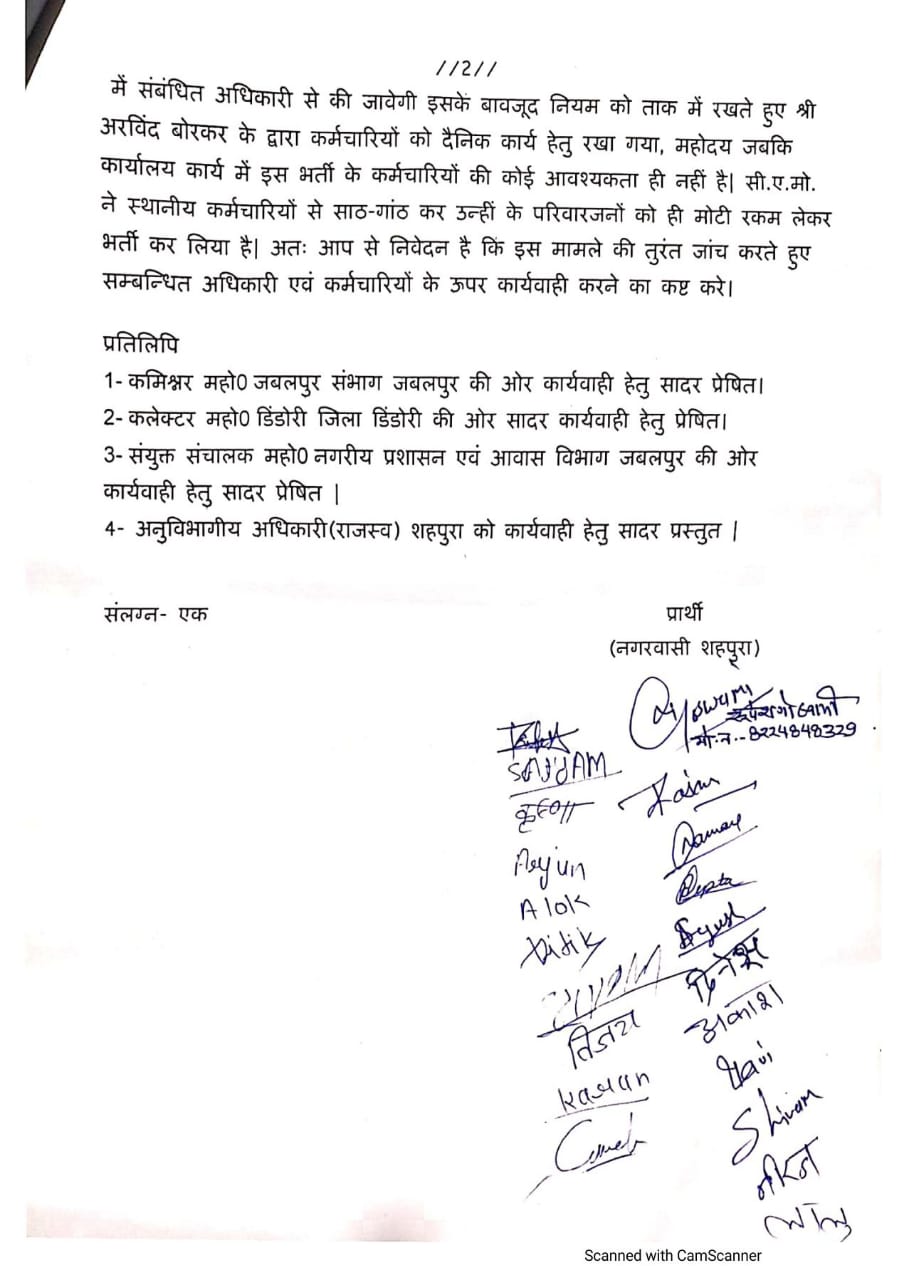 //2//
में संबंधित अधिकारी से की जावेगी इसके बावजूद नियम को ताक में रखते हुए श्री
अरविंद बोरकर के द्वारा कर्मचारियों को दैनिक कार्य हेतु रखा गया, महोदय जबकि
कार्यालय कार्य में इस भर्ती के कर्मचारियों की कोई आवश्यकता ही नहीं है| सी.ए.मो.
ने स्थानीय कर्मचारियों से साठ-गांठ कर उन्हीं के परिवारजनों को ही मोटी रकम लेकर
भर्ती कर लिया है| अतः आप से निवेदन है कि इस मामले की तुरंत जांच करते हुए
सम्बन्धित अधिकारी एवं कर्मचारियों के ऊपर कार्यवाही करने का कष्ट करे।
प्रतिलिपि
1- कमिश्नर महो0 जबलपुर संभाग जबलपुर की ओर कार्यवाही हेतु सादर प्रेषित।
2- कलेक्टर महो0 डिंडोरी जिला डिंडोरी की ओर सादर कार्यवाही हेतु प्रेषित।
3- संयुक्त संचालक महो0 नगरीय प्रशासन एवं आवास विभाग जबलपुर की ओर
कार्यवाही हेतु सादर प्रेषित |
4- अनुविभागीय अधिकारी(राजस्व) शहपुरा को कार्यवाही हेतु सादर प्रस्तुत |
संलग्न- एक
प्रार्थी
(नगरवासी शहपुरा)
मो.न.-8224848329
SADDAM
कृष्णा
Arjun
Alok
Gupta
Ayush
दिनेश
आकाश
Shivam
नीरज
Scanned with CamScanner